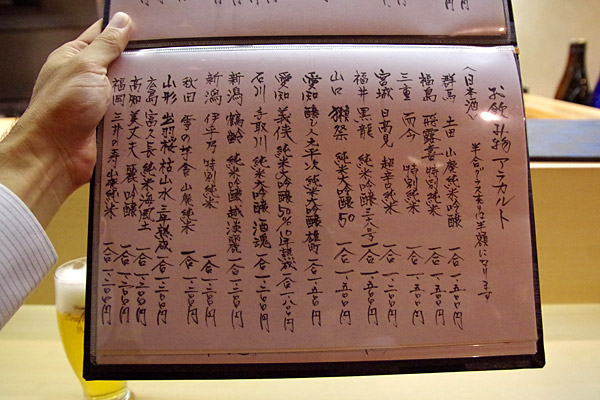 お飲み物アラカルト
半合グラス売りは半額になります
〈日本酒〉
群馬 土田 山廃純米吟醸 一合 一、五〇〇円
福島 飛露喜 特別純米 一合 一、五〇〇円
三重 而今 特別純米 一合 一、五〇〇円
宮城 日高見 超辛古純米 一合 一、二〇〇円
福井 黒龍 純米吟醸 三十八号 一合 一、五〇〇円
山口 獺祭 純米大吟醸 50 一合 一、五〇〇円
愛知 醸し人九平次 純米大吟醸 雄町 一合 一、五〇〇円
愛知 義侠 純米大吟醸 50% 10年熟成 一合 一、八〇〇円
石川 手取川 純米大吟醸 酒魂 一合 一、二〇〇円
新潟 鶴齢 純米吟醸 越淡麗 一合 一、三〇〇円
新潟 伊乎乃 特別純米 一合 一、三〇〇円
秋田 雪の茅舎 山廃純米 一合 一、二〇〇円
山形 出羽桜 枯山水 三年熟成 一合 一、三〇〇円
広島 富久長 純米 海風土 一合 一、三〇〇円
高知 美丈夫 麗 吟醸 一合 一、二〇〇円
福岡 三井の寿 山廃純米 一合 一、三〇〇円